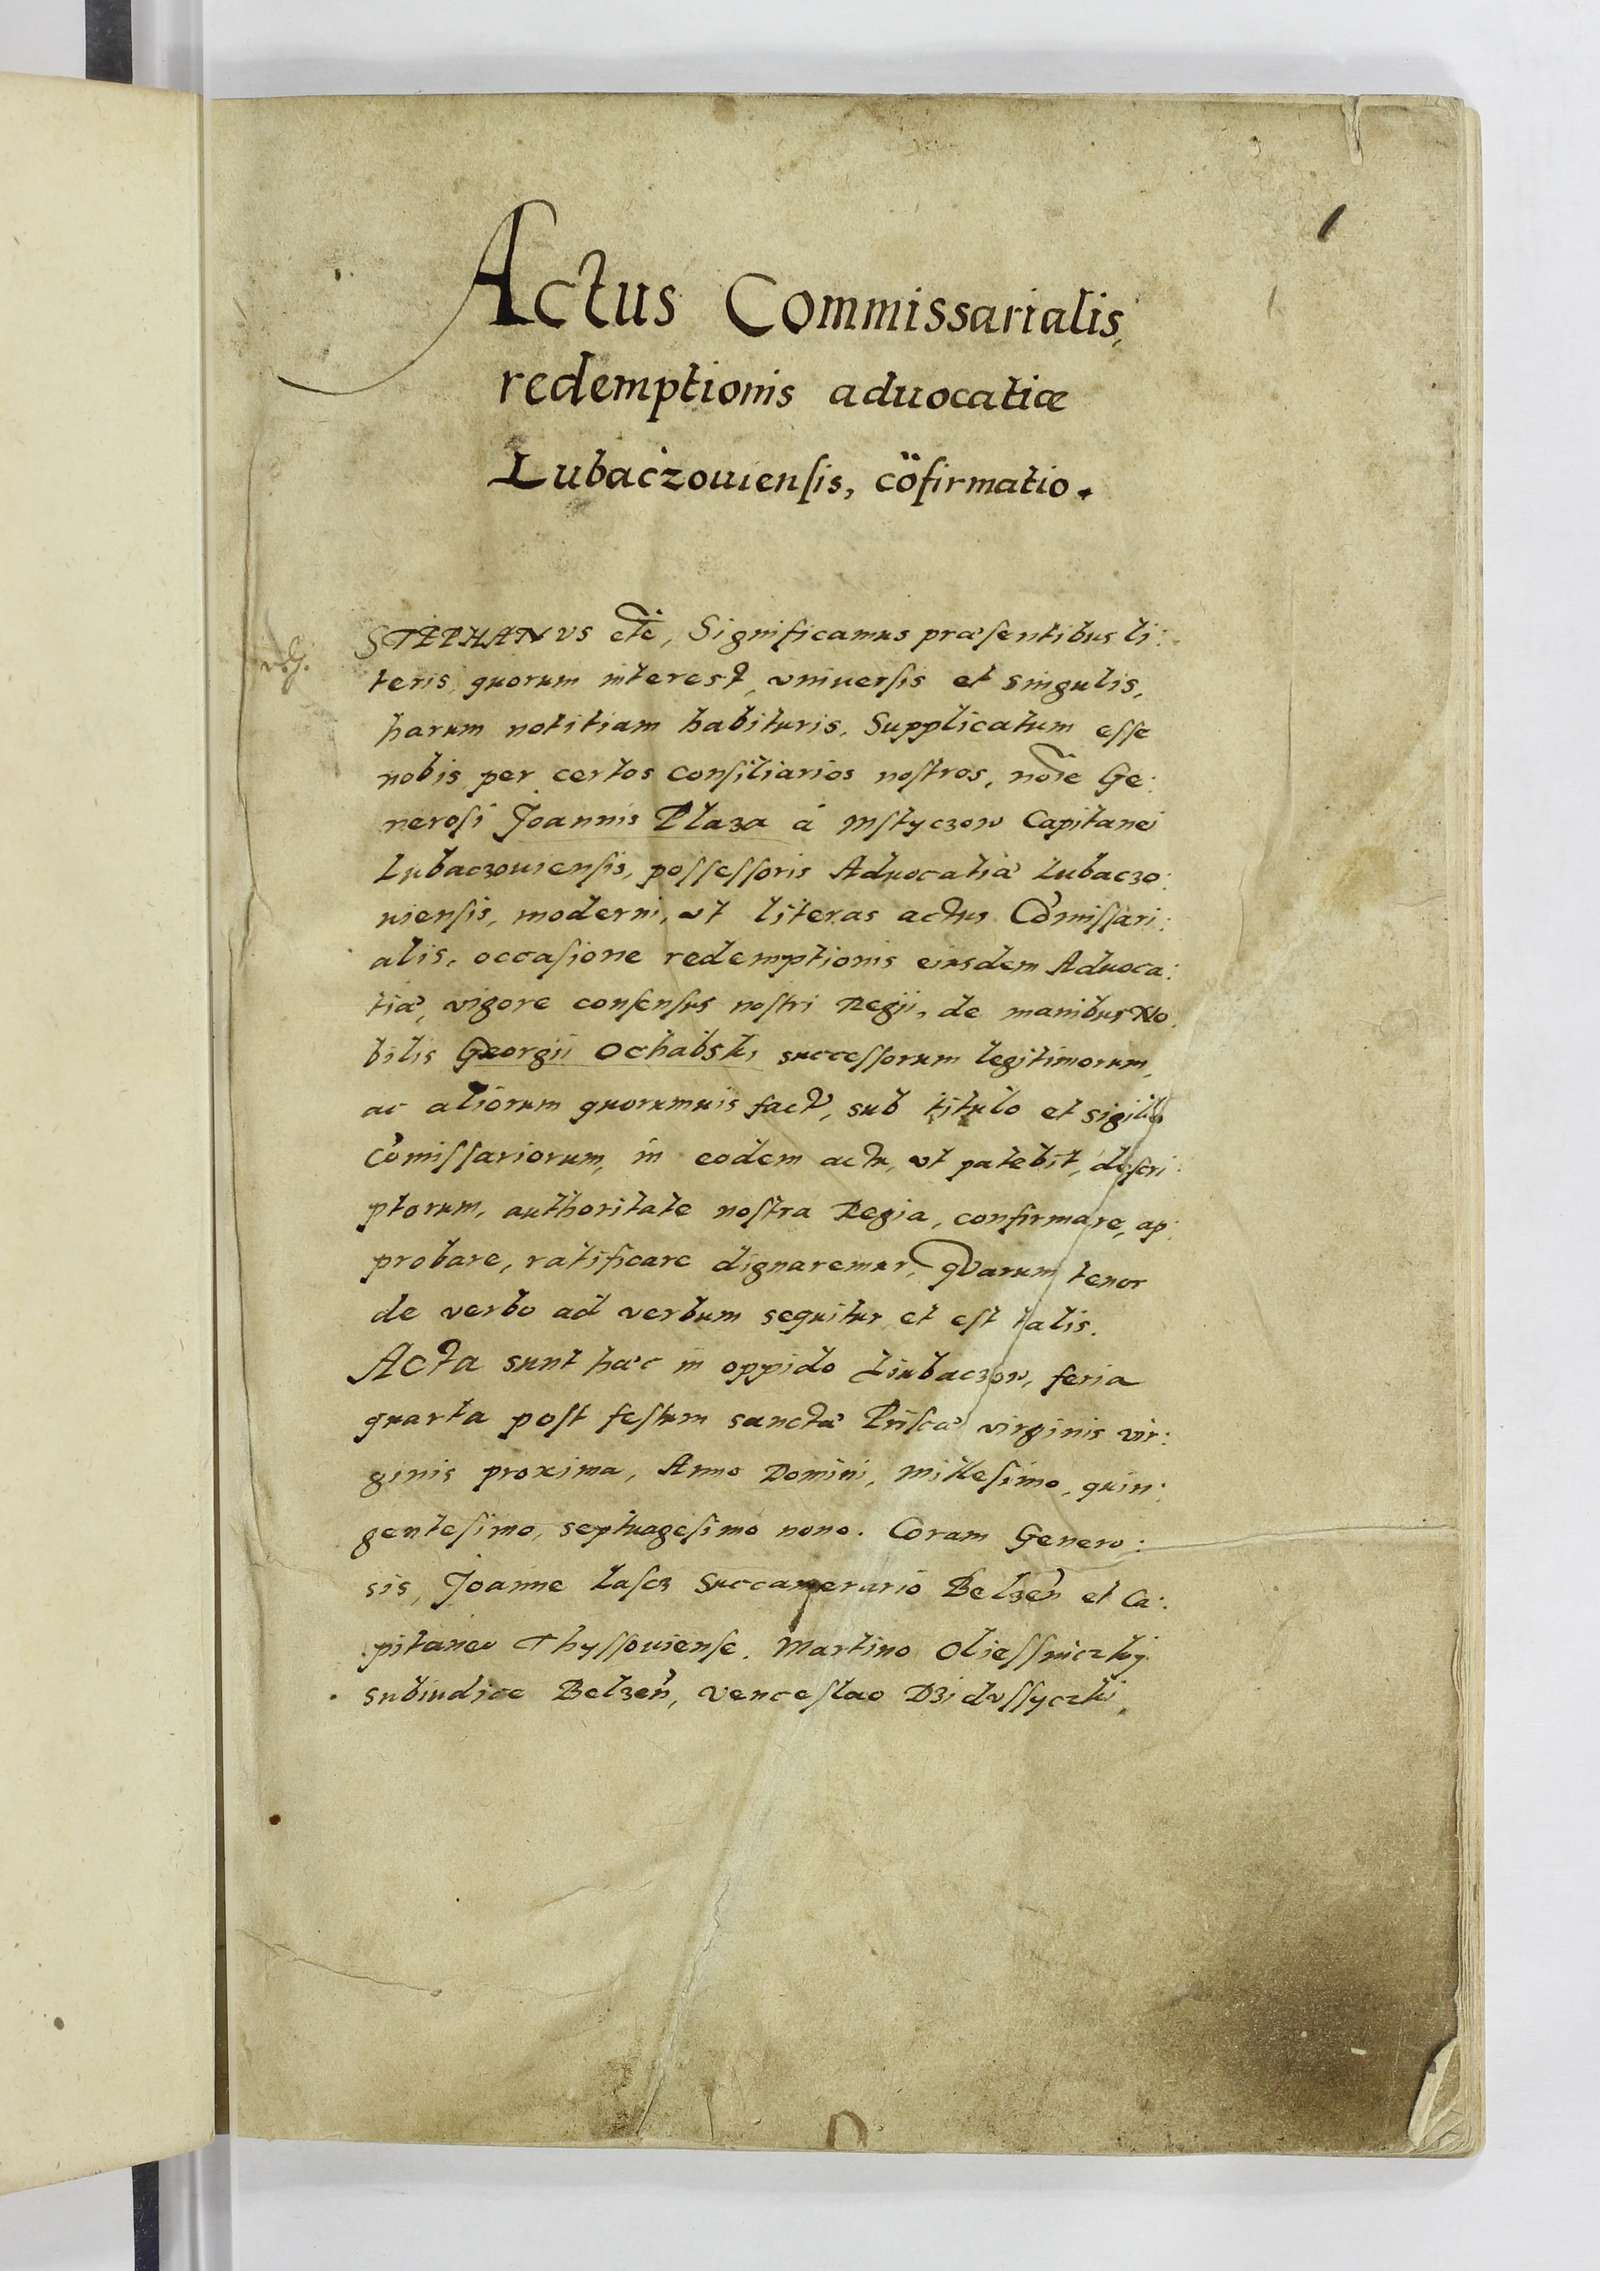 1
Actus Commissarialis,
redemptionis aduocatiæ
Lubaczouiensis, cõfirmatio.
STEPHANVS etc, Significamus præsentibus li:
teris, quorum interest, vniuersis et singulis,
harum notitiam habituris. Supplicatum esse
nobis per certos consiliarios nostros, noie Ge:
nerosi Joannis Plaza á Mstyczow Capitanei
Lubaczouiensis, possessoris Aduocatiæ Lubaczo:
uiensis, moderni, vt literas actus Comissari:
alis, occasione redemptionis eiusdem Aduoca:
tiæ, vigore consensus nostri Regii, de manibus No
bilis Georgii Ochabski, successorum legitimorum,
ac aliorum quorumuis fact, sub titulo et sigillo
Comissariorum, in eodem actu, vt patebit, descri:
ptorum, authoritate nostra Regia, confirmare, ap:
probare, ratificare dignaremur, Quarum tenor
de verbo ad verbum sequitur et est talis.
Acta sunt hæc in oppido Liubaczow, feria
quarta post festum sanctæ Priscæ virginis vir:
ginis proxima, Anno Domini, Millesimo, quin:
gentesimo, septuagesimo nono. Coram Genero:
sis, Joanne Lascz Succamerario Belzen et Ca:
pitaneo Thyssouiense. Martino Oliessniczky
subiudice Belzen, Venceslao Dzidussyczki,